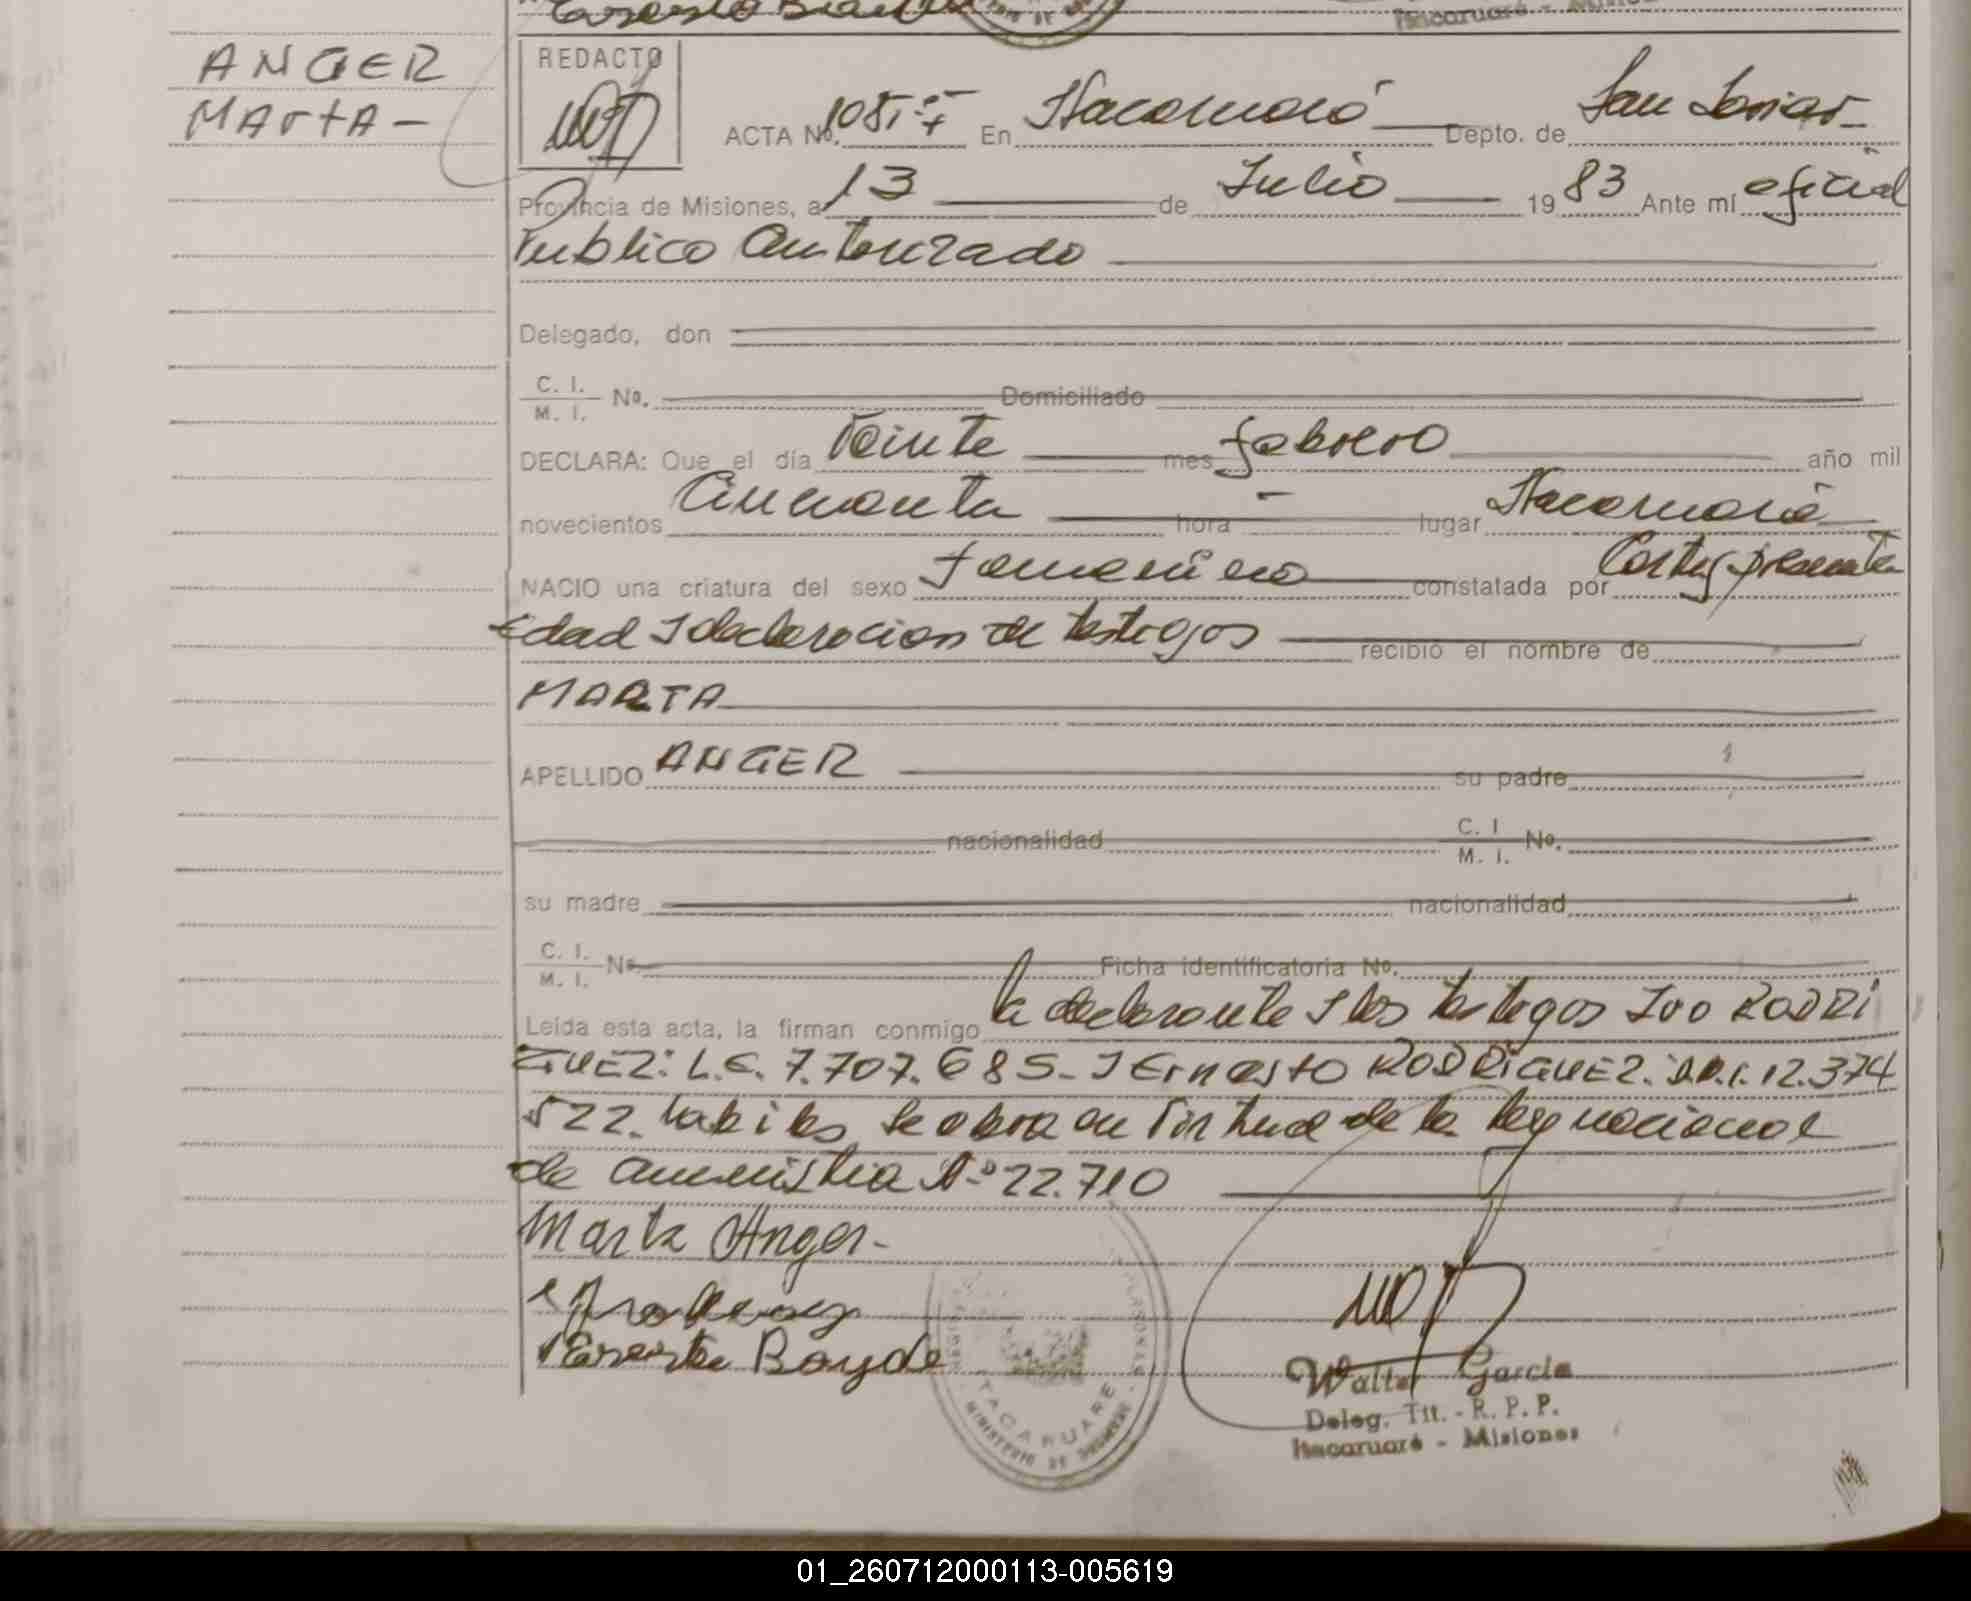 ANGER
MArtA -
REDACTO
ACTA No. 1085 En Itacaruaré Depto. de San Javier
Provincia de Misiones, a 13 de Julio 1983 Ante mí oficial
Publico Autorizado
Delegado, don
C. I.
M. I. No. Domiciliado
DECLARA: Que el día Veinte mes febrero año mil
novecientos Cincuenta hora - lugar Itacaruaré
NACIO una criatura del sexo femenino constatada por
Edad y declaracion de testigos recibió el nombre de
MARTA
APELLIDO ANGER su padre
nacionalidad C. I.
M. I. No.
su madre nacionalidad
C. I.
M. I. No. Ficha identificatoria No.
Leída esta acta, la firman conmigo la declarante y los testigos Ivo RODRI
GUEZ: L.E. 7.707.685 - y Ernesto RODRIGUEZ. D.N.I. 12.374
522. habiles se obra en virtud de la ley nacional
de amnistia Nº 22.710
Marta Anger -
Walter García
Deleg. Tit. - R. P. P.
Itacaruaré - Misiones
ITACARUARE
MINISTERIO DE GOBIERNO
01_260712000113-005619